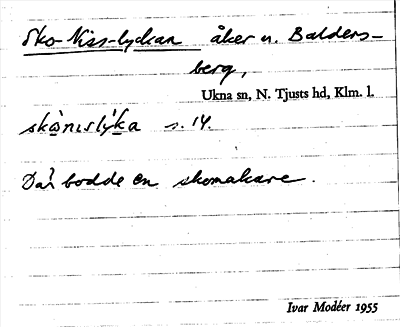 Sko-Niss-lyckan åker u. Balders-
berg,
Ukna sn, N. Tjusts hd, Klm. l.
skònıslýka s. 14.
Där bodde en skomakare.
Ivar Modéer 1955